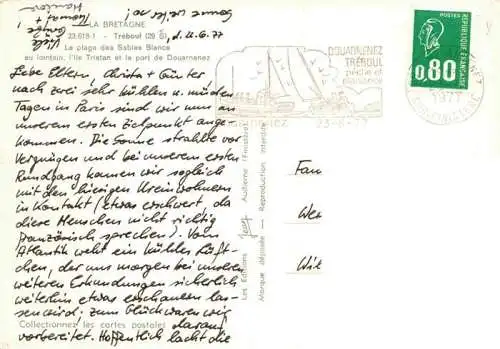 LA BRETAGNE
22-619-1 - Tréboul (29
La plage des Sables Blancs
au lointain, l'île Tristan et le port de Douarnenez
d. 22.6.77
Liebe Eltern, Christa + Günter
nach zwei sehr kühlen u. müden
Tagen in Paris sind wir nun an
unserem ersten Zielpunkt ange-
kommen. Die Sonne strahlte vor
Vergnügen und bei unserem ersten
Rundgang kamen wir sogleich
mit den hiesigen Einwohnern
in Kontakt (etwas erschwert, da
diese Menschen nicht richtig
Französisch sprechen). Vom
Atlantik weht ein kühles Lüft-
chen, der uns morgen bei unseren
weiteren Erkundungen sicherlich
weiterhin etwas erschauern las-
sen wird. Zum Glück waren wir
darauf
vorbereitet. Hoffentlich lacht die
Sonne weiter so!
Collectionnez les cartes postales
Les Editions Jos Audierne (Finistère)
Marque déposée Reproduction interdite
DOUARNENEZ
TRÉBOUL
pêche et
plaisance
1977
POSTES
0,80
REPUBLIQUE FRANÇAISE
Fam
Wer
Wil